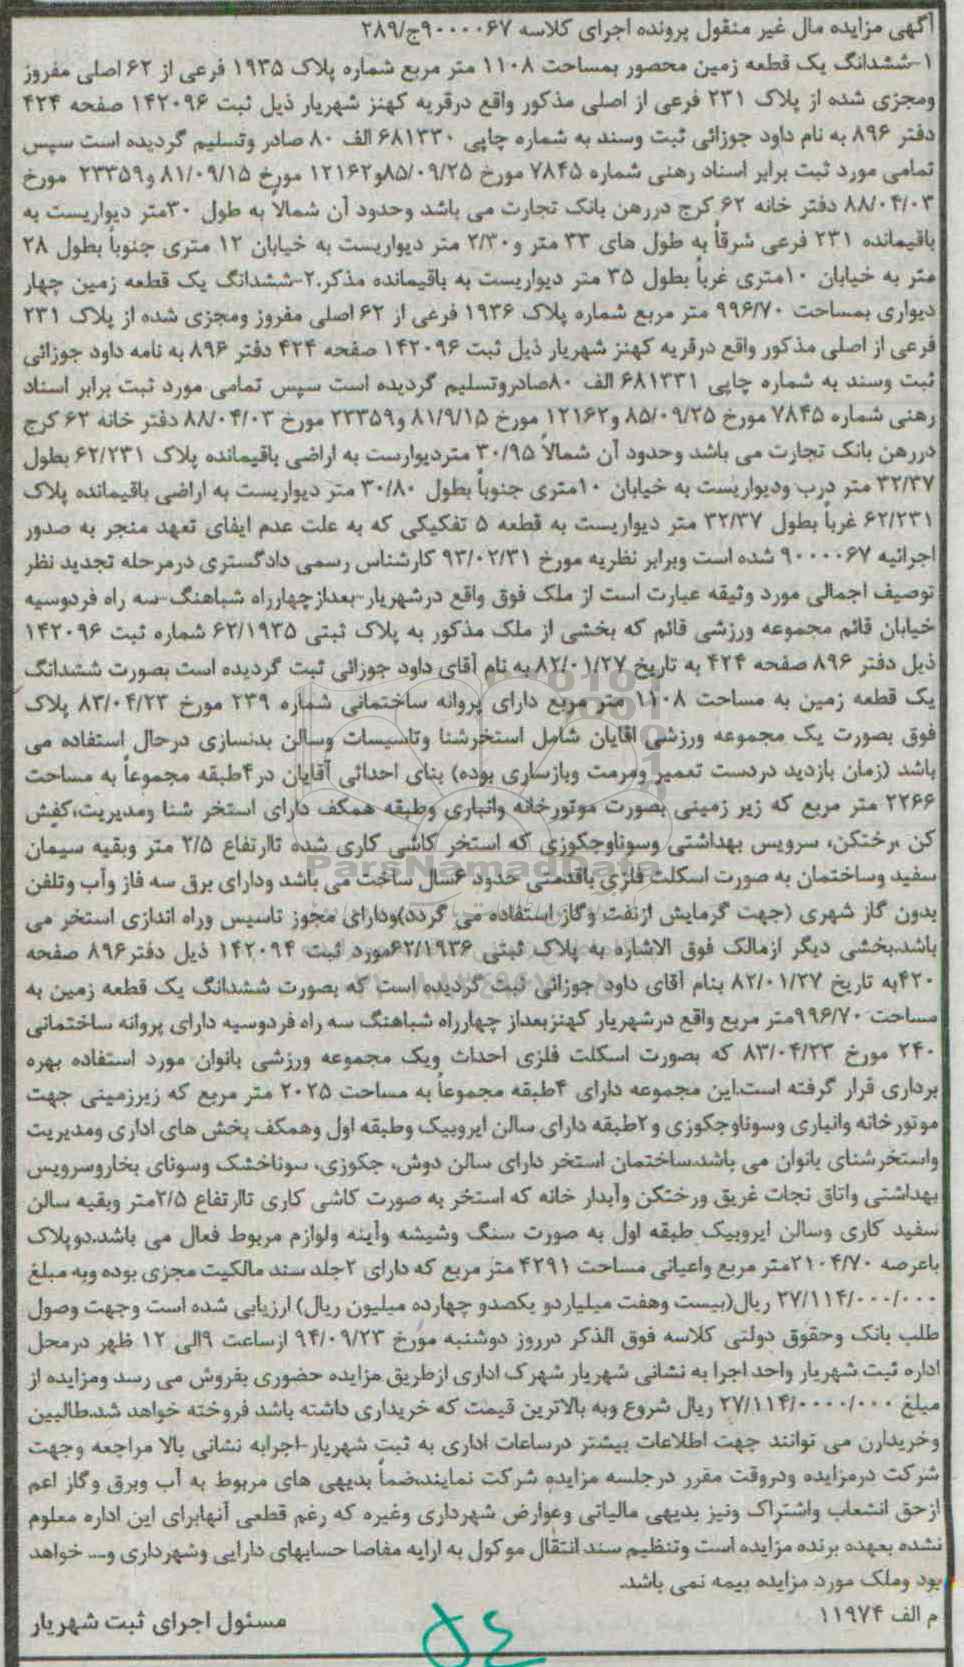 آگهی مزایده مال غیر منقول پرونده اجرای کلاسه ۹۰۰۰۰۶۷ج/۲۸۹
۱-ششدانگ یک قطعه زمین محصور بمساحت ۱۱۰۸ متر مربع شماره پلاک ۱۹۳۵ فرعی از ۶۲ اصلی مفروز
ومجزی شده از پلاک ۲۳۱ فرعی از اصلی مذکور واقع درقریه کهنز شهریار ذیل ثبت ۱۴۲۰۹۶ صفحه ۴۲۴
دفتر ۸۹۶ به نام داود جوزائی ثبت وسند به شماره چاپی ۶۸۱۳۳۰ الف ۸۰ صادر وتسلیم گردیده است سپس
تمامی مورد ثبت برابر اسناد رهنی شماره ۷۸۴۵ مورخ ۸۵/۰۹/۲۵و۱۲۱۶۲ مورخ ۸۱/۰۹/۱۵ و۲۳۳۵۹ مورخ
۸۸/۰۴/۰۳ دفتر خانه ۶۲ کرج دررهن بانک تجارت می باشد وحدود آن شمالاً به طول ۳۰متر دیواریست به
باقیمانده ۲۳۱ فرعی شرقاً به طول های ۳۳ متر و۲/۳۰ متر دیواریست به خیابان ۱۲ متری جنوباً بطول ۲۸
متر به خیابان ۱۰متری غرباً بطول ۳۵ متر دیواریست به باقیمانده مذکر.۲-ششدانگ یک قطعه زمین چهار
دیواری بمساحت ۹۹۶/۷۰ متر مربع شماره پلاک ۱۹۳۶ فرعی از ۶۲ اصلی مفروز ومجزی شده از پلاک ۲۳۱
فرعی از اصلی مذکور واقع درقریه کهنز شهریار ذیل ثبت ۱۴۲۰۹۶ صفحه ۴۲۴ دفتر ۸۹۶ به نامه داود جوزائی
ثبت وسند به شماره چاپی ۶۸۱۳۳۱ الف ۸۰صادروتسلیم گردیده است سپس تمامی مورد ثبت برابر اسناد
رهنی شماره ۷۸۴۵ مورخ ۸۵/۰۹/۲۵ و۱۲۱۶۲ مورخ ۸۱/۹/۱۵ و۲۳۳۵۹ مورخ ۸۸/۰۴/۰۳ دفتر خانه ۶۲ کرج
دررهن بانک تجارت می باشد وحدود آن شمالاً ۳۰/۹۵ متردیوارست به اراضی باقیمانده پلاک ۶۲/۲۳۱ بطول
۳۲/۳۷ متر درب ودیواریست به خیابان ۱۰متری جنوباً بطول ۳۰/۸۰ متر دیواریست به اراضی باقیمانده پلاک
۶۲/۲۳۱ غرباً بطول ۳۲/۳۷ متر دیواریست به قطعه ۵ تفکیکی که به علت عدم ایفای تعهد منجر به صدور
اجرائیه ۹۰۰۰۰۶۷ شده است وبرابر نظریه مورخ ۹۳/۰۲/۳۱ کارشناس رسمی دادگستری درمرحله تجدید نظر
توصیف اجمالی مورد وثیقه عبارت است از ملک فوق واقع درشهریار-بعدازچهارراه شباهنگ-سه راه فردوسیه
خیابان قائم مجموعه ورزشی قائم که بخشی از ملک مذکور به پلاک ثبتی ۶۲/۱۹۳۵ شماره ثبت ۱۴۲۰۹۶
ذیل دفتر ۸۹۶ صفحه ۴۲۴ به تاریخ ۸۲/۰۱/۲۷ به نام آقای داود جوزائی ثبت گردیده است بصورت ششدانگ
یک قطعه زمین به مساحت ۱۱۰۸ متر مربع دارای پروانه ساختمانی شماره ۲۳۹ مورخ ۸۳/۰۴/۲۳ پلاک
فوق بصورت یک مجموعه ورزشی آقایان شامل استخرشنا وتاسیسات وسالن بدنسازی درحال استفاده می
باشد (زمان بازدید دردست تعمیر ومرمت وبازسازی بوده) بنای احداثی آقایان در۴طبقه مجموعاً به مساحت
۲۲۶۶ متر مربع که زیر زمینی بصورت موتورخانه وانباری وطبقه همکف دارای استخر شنا ومدیریت،کفش
کن ،رختکن، سرویس بهداشتی وسوناوجکوزی که استخر کاشی کاری شده تاارتفاع ۲/۵ متر وبقیه سیمان
سفید وساختمان به صورت اسکلت فلزی باقدمتی حدود ۶سال ساخت می باشد ودارای برق سه فاز وآب وتلفن
بدون گاز شهری (جهت گرمایش ازنفت وگاز استفاده می گردد)ودارای مجوز تاسیس وراه اندازی استخر می
باشد.بخشی دیگر ازمالک فوق الاشاره به پلاک ثبتی ۶۲/۱۹۳۶مورد ثبت ۱۴۲۰۹۴ ذیل دفتر۸۹۶ صفحه
۴۲۰به تاریخ ۸۲/۰۱/۲۷ بنام آقای داود جوزائی ثبت گردیده است که بصورت ششدانگ یک قطعه زمین به
مساحت ۹۹۶/۷۰متر مربع واقع درشهریار کهنزبعداز چهارراه شباهنگ سه راه فردوسیه دارای پروانه ساختمانی
۲۴۰ مورخ ۸۳/۰۴/۲۳ که بصورت اسکلت فلزی احداث ویک مجموعه ورزشی بانوان مورد استفاده بهره
برداری قرار گرفته است.این مجموعه دارای ۴طبقه مجموعاً به مساحت ۲۰۲۵ متر مربع که زیرزمینی جهت
موتورخانه وانباری وسوناوجکوزی و۲طبقه دارای سالن ایروبیک وطبقه اول وهمکف بخش های اداری ومدیریت
واستخرشنای بانوان می باشد.ساختمان استخر دارای سالن دوش، جکوزی، سوناخشک وسونای بخاروسرویس
بهداشتی واتاق نجات غریق ورختکن وآبدار خانه که استخر به صورت کاشی کاری تاارتفاع ۲/۵متر وبقیه سالن
سفید کاری وسالن ایروبیک طبقه اول به صورت سنگ وشیشه وآینه ولوازم مربوط فعال می باشد.دوپلاک
باعرصه ۲۱۰۴/۷۰متر مربع واعیانی مساحت ۴۲۹۱ متر مربع که دارای ۲جلد سند مالکیت مجزی بوده وبه مبلغ
۲۷/۱۱۴/۰۰۰/۰۰۰ ریال(بیست وهفت میلیاردو یکصدو چهارده میلیون ریال) ارزیابی شده است وجهت وصول
طلب بانک وحقوق دولتی کلاسه فوق الذکر درروز دوشنبه مورخ ۹۴/۰۹/۲۳ ازساعت ۹الی ۱۲ ظهر درمحل
اداره ثبت شهریار واحد اجرا به نشانی شهریار شهرک اداری ازطریق مزایده حضوری بفروش می رسد ومزایده از
مبلغ ۲۷/۱۱۴/۰۰۰۰/۰۰۰ ریال شروع وبه بالاترین قیمت که خریداری داشته باشد فروخته خواهد شد.طالبین
وخریدارن می توانند جهت اطلاعات بیشتر درساعات اداری به ثبت شهریار-اجرابه نشانی بالا مراجعه وجهت
شرکت درمزایده ودروقت مقرر درجلسه مزایده شرکت نمایند.ضماً بدیهی های مربوط به آب وبرق وگاز اعم
ازحق انشعاب واشتراک ونیز بدیهی مالیاتی وعوارض شهرداری وغیره که رغم قطعی آنهابرای این اداره معلوم
نشده بعهده برنده مزایده است وتنظیم سند انتقال موکول به ارایه مفاصا حسابهای دارایی وشهرداری و... خواهد
بود وملک مورد مزایده بیمه نمی باشد.
م الف ۱۱۹۷۴
مسئول اجرای ثبت شهریار
ParsNamadData
۵٤